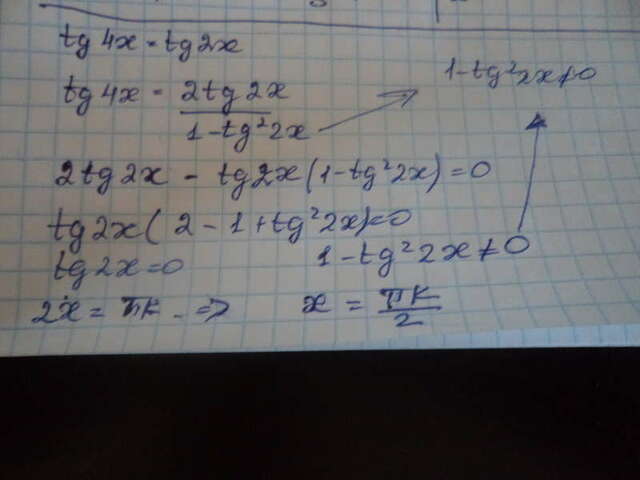 tg 4x = tg 2x
tg 4x = 2tg 2x / 1-tg² 2x
1-tg² 2x ≠ 0
2tg 2x - tg 2x (1-tg² 2x) = 0
tg 2x ( 2 - 1 + tg² 2x) = 0
tg 2x = 0
1-tg² 2x ≠ 0
2x = πk => x = πk / 2